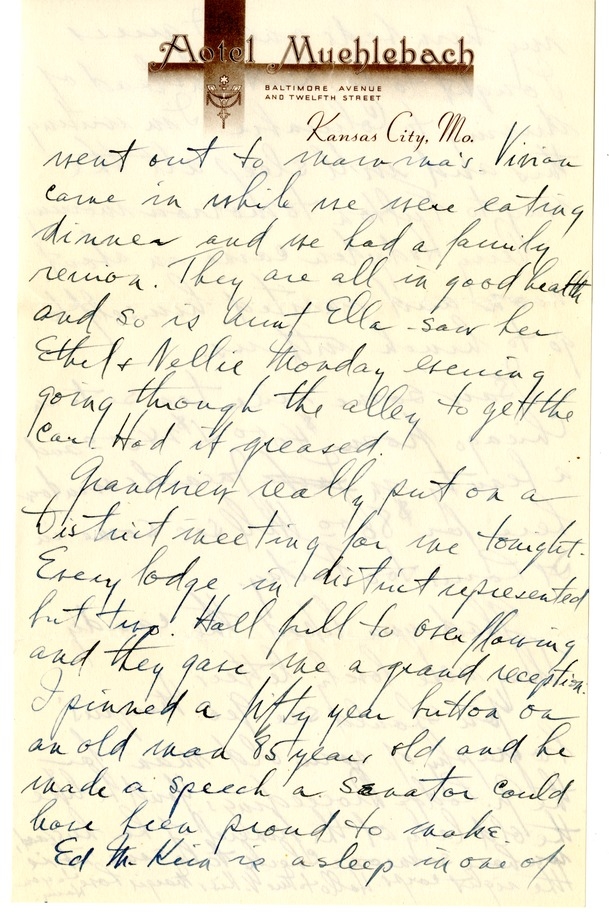 Hotel Muehlebach
BALTIMORE AVENUE
AND TWELFTH STREET
Kansas City, Mo.
went out to mamma's. Vivian
came in while we were eating
dinner and we had a family
reunion. They are all in good health
and so is Aunt Ella - saw her
Ethel & Nellie Monday evening
going through the alley to get the
car. Had it greased.
Grandview really put on a
District meeting for me tonight.
Every lodge in district represented
but two. Hall full to overflowing
and they gave me a grand reception.
I pinned a fifty year button on
an old man 85 years old and he
made a speech a Senator could
have been proud to make.
Ed McKim is asleep in one of